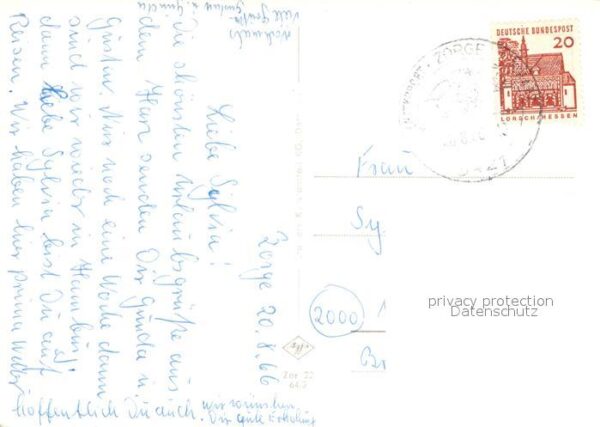 Zorge 20.8.66
Liebe Sylvia!
Die schönsten Urlaubsgrüße aus
dem Harz senden Dir Gunda u
Gustav. Nur noch eine Woche dann
sind wir wieder in Hamburg.
dann liebe Sylvia bist Du auf
Reisen. Wir haben hier prima Wetter
hoffentlich Du auch. wir wünschen
Dir gute Erholung
Nochmals
viele Grüße
Gustav u. Gunda
DEUTSCHE BUNDESPOST
20
LORSCH/HESSEN
ZORGE
3421
Frau
Sy
2000
privacy protection
Datenschutz
Zor 22